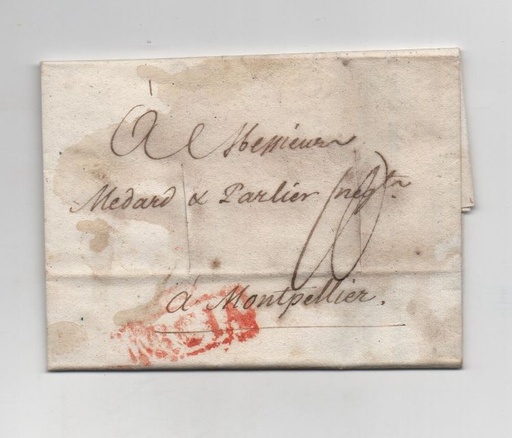 A Messieurs
Medard & Parlier negts.
à Montpellier.